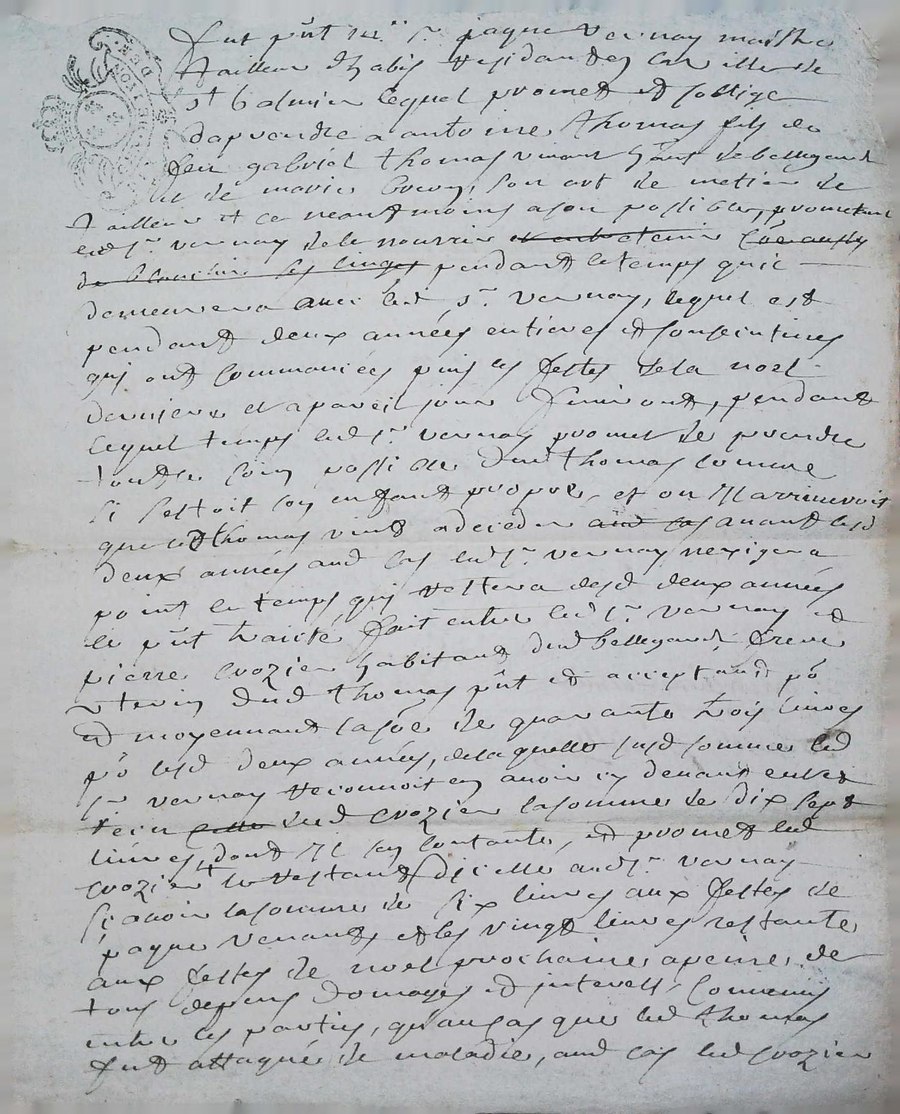 fut pñt Mre Sr paque vernay maistre
tailleur dhabis residant en la ville de
st Galmier lequel promet et soblige
daprendre a antoine thomas fils de
feu gabriel thomas vivant de bellegarde
et de marie son art de metier de
tailleur et ce neantmoins a son possible, prometant
led sr vernay de le nourrir et entretenir
de blanchir ses linges pendant le temps quil
demeurera avec led sr vernay, lequel est
pendant deux années entieres et consecutives
qui ont commancées puis les festes de la noel
derniere et a pareil jour finiront, pendant
lequel temps led sr vernay promet de prendre
toutte soin possible dud thomas comme
si sestoit son enfant propre, et ou Il arriveroit
que led thomas vint a deceder aud cas avant lesd
deux années aud cas led sr vernay nexigera
point le temps qui restera desd deux années
le pñt traicté fait entre led sr vernay et
pierre crozier habitant dud bellegarde, frere
uterin dud thomas pñt et acceptant po
et moyennant la soe de quarante trois livres
po lesd deux années, de laquelle susd somme led
sr vernay reconnoit en avoir cy devant
receu dud crozier la somme de dix sept
livres, dont Il se contante, et promet led
crozier le restant dicelle aud sr vernay
scavoir la somme de six livres aux festes de
paque venant, et les vingt livres restante
aux festes de noel prochaine a peine de
tous depens domages et interests, Convenu
entre les parties, quau cas que led thomas
fut attaqué de maladie, aud cas led crozier